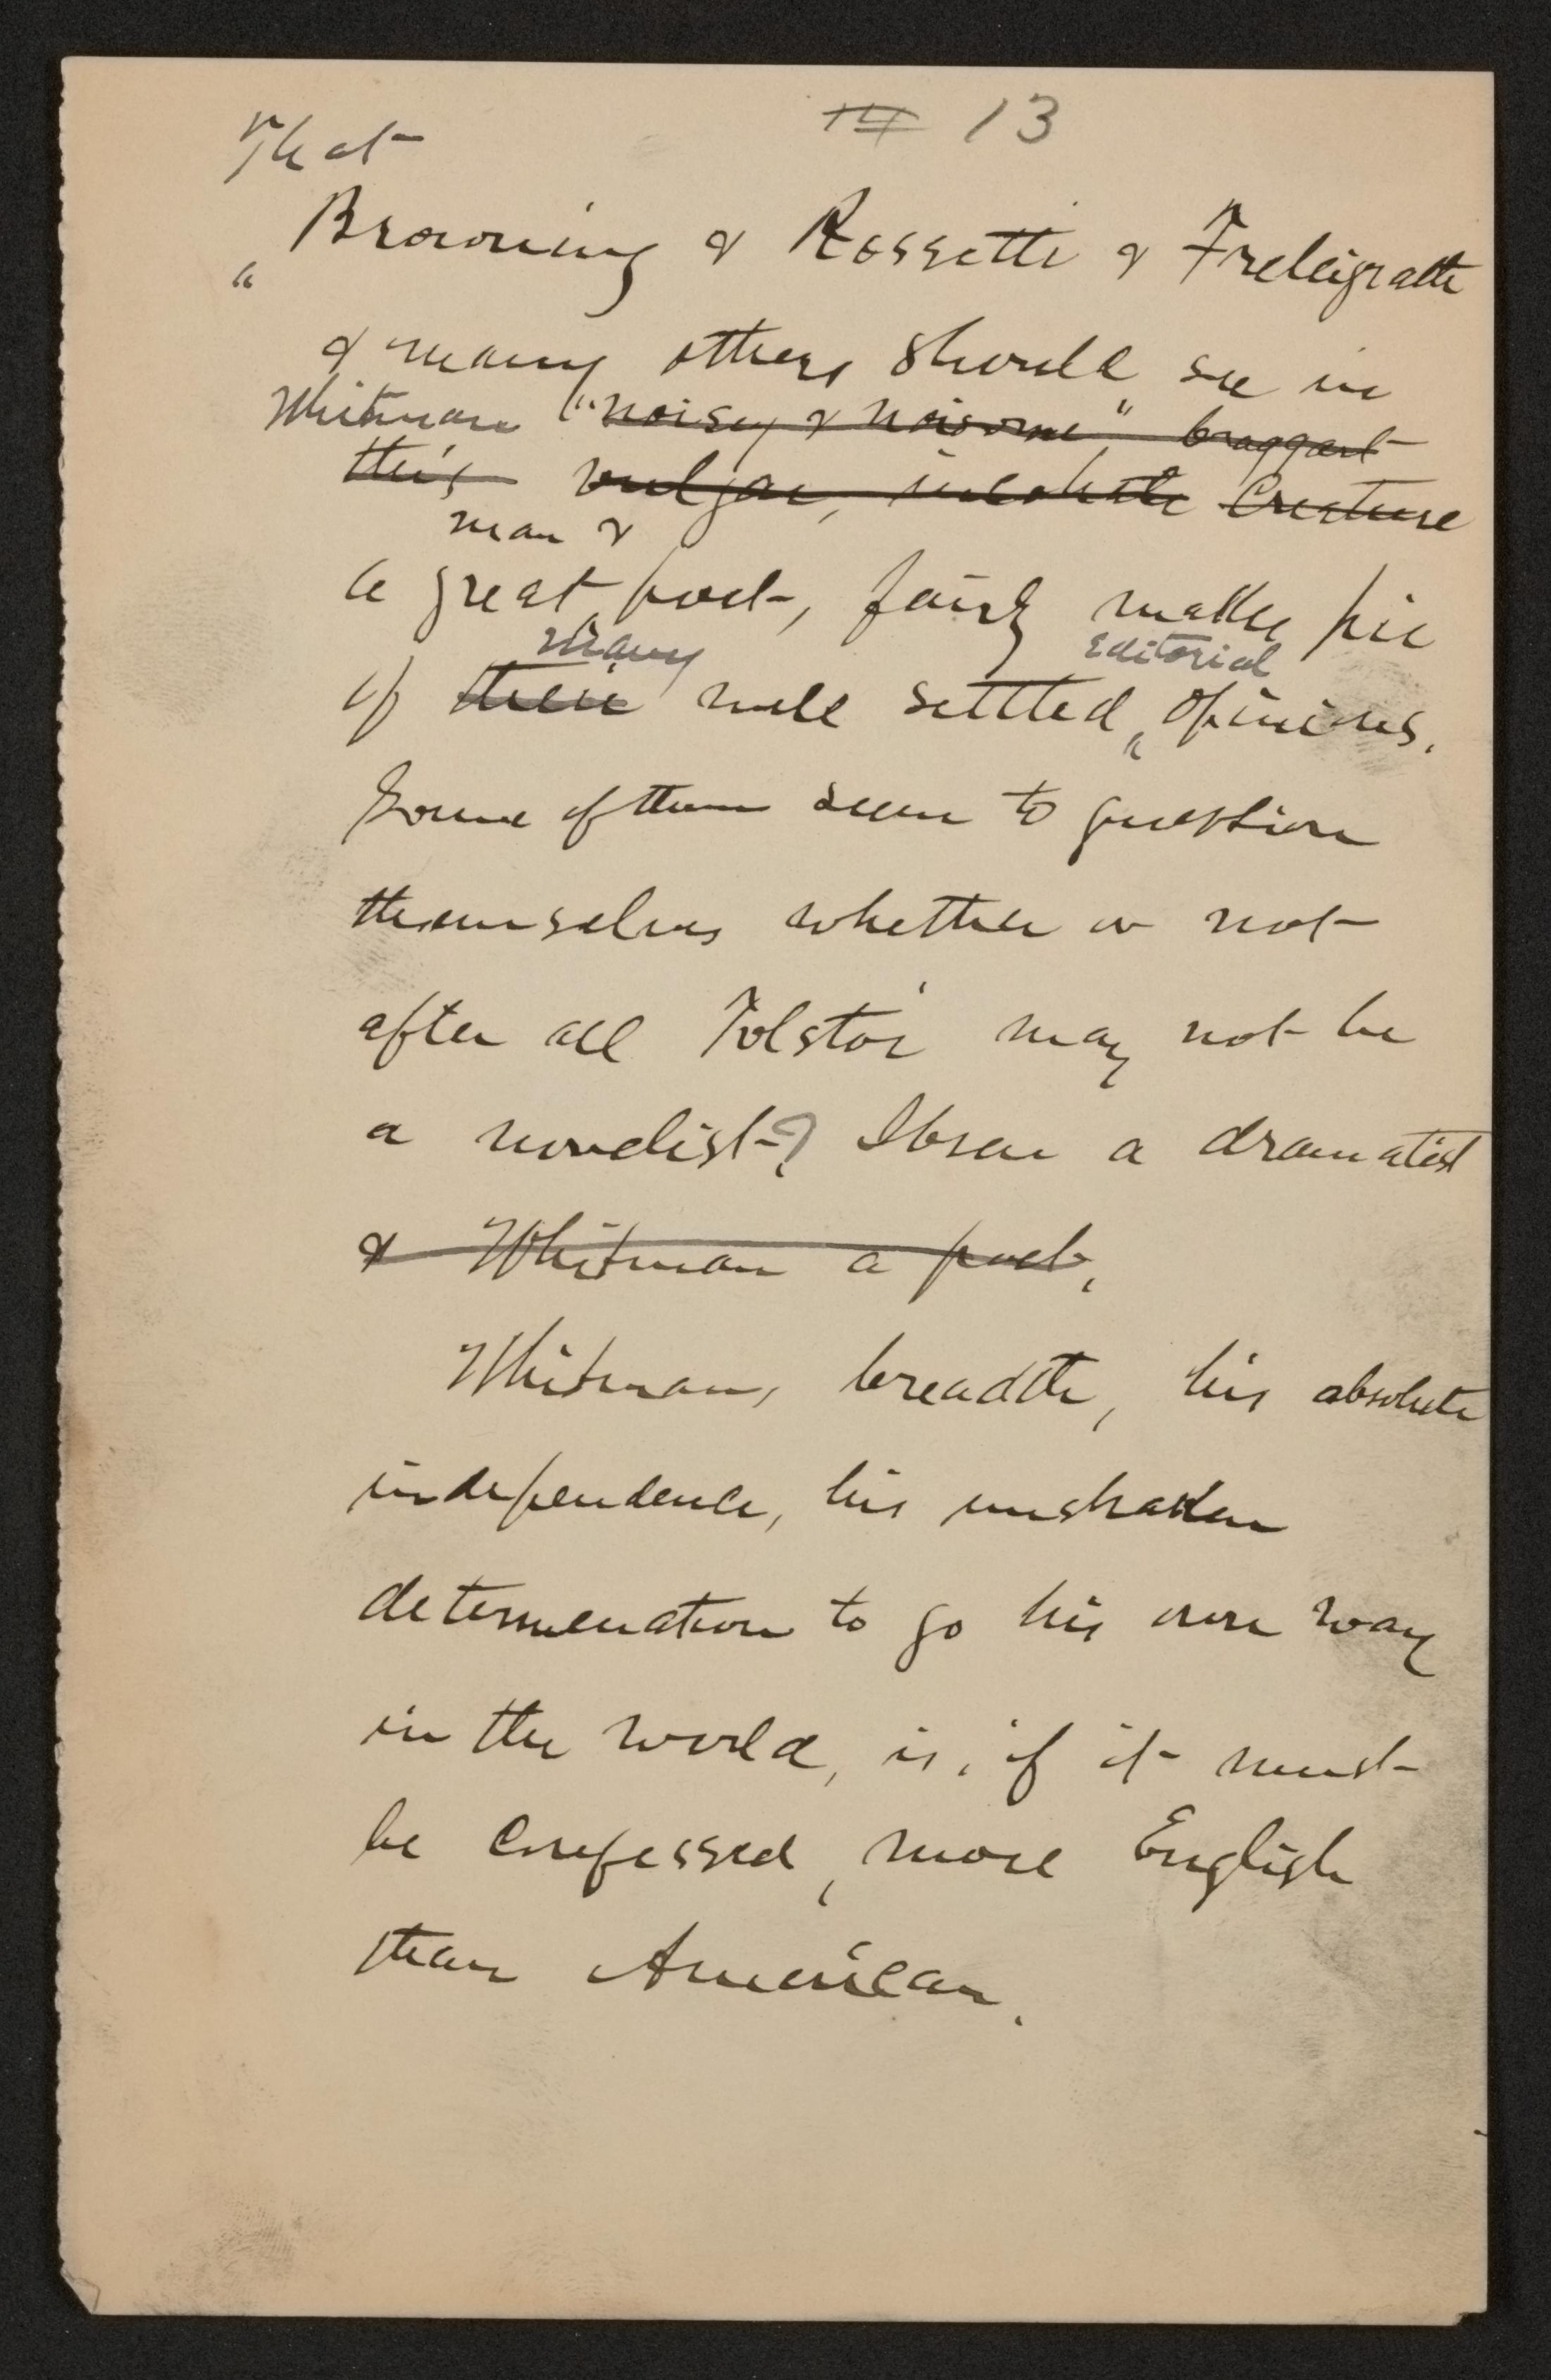 14 13
That
Browning & Rossetti & Freleigrath
& many others should see in
Whitman "noisy & noisome" braggart
this vulgar, inchoate Creature
man &
a great poet, fairly makes pie
many editorial
of their well settled opinions.
Some of them seem to question
themselves whether or not
after all Tolstoi may not be
a novelist? Ibsen a dramatist
& Whitman a poet.
Whitmans breadth, his absolute
independence, his unshaken
determination to go his own way
in the world, is, if it must
be confessed, more English
than American.